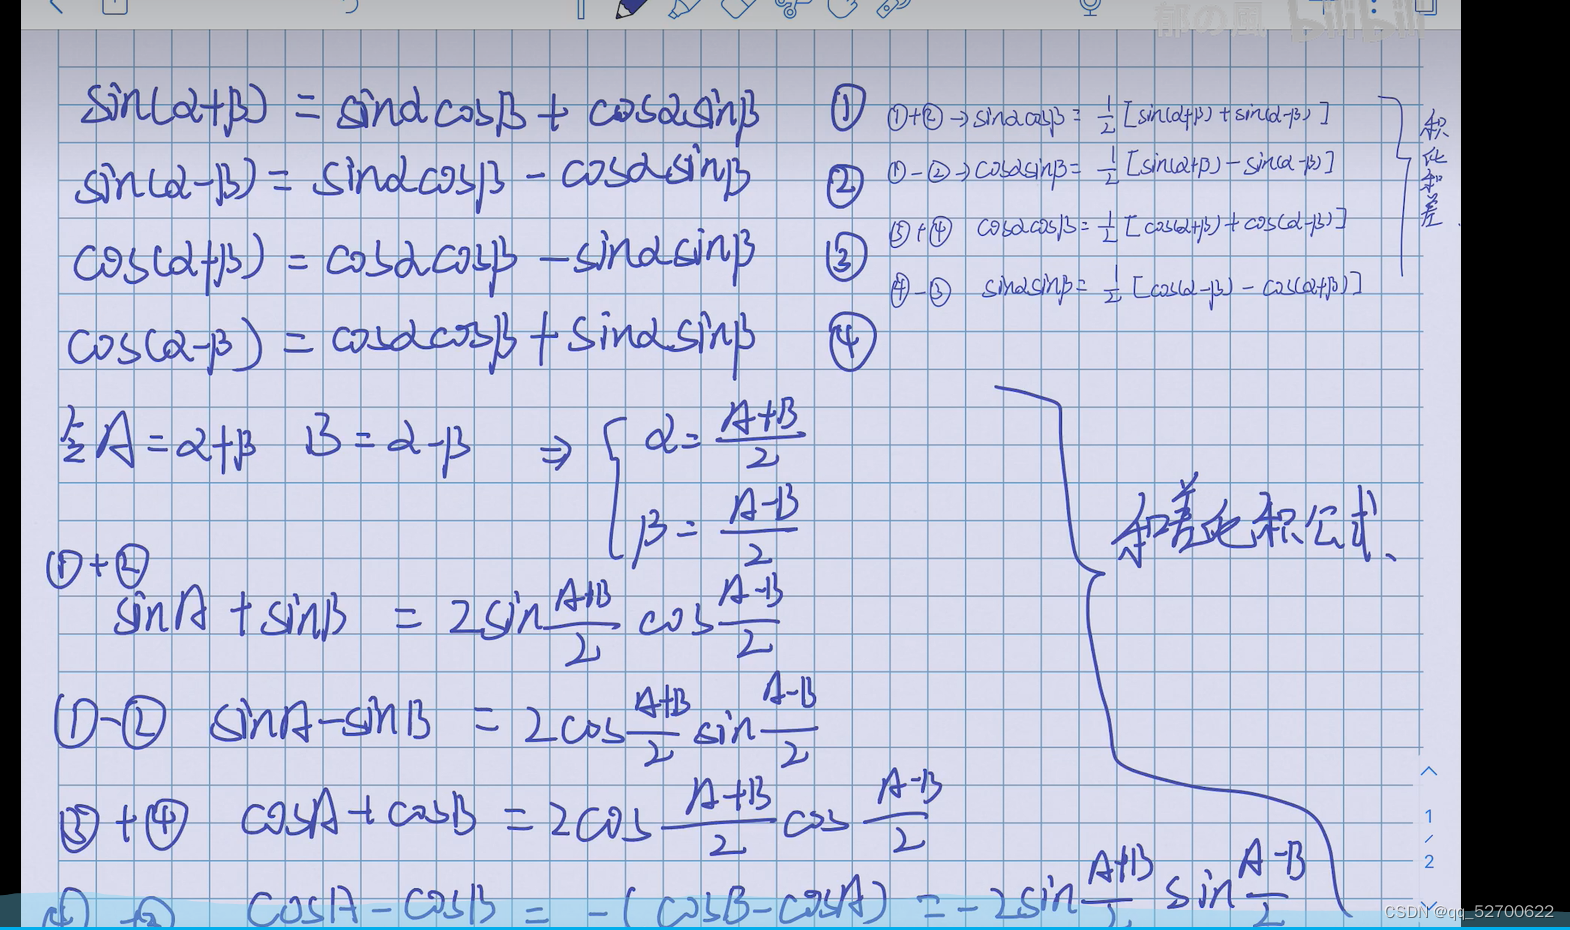 郁の風 bilibili
sin(α+β) = sinαcosβ + cosαsinβ ①
sin(α-β) = sinαcosβ - cosαsinβ ②
cos(α+β) = cosαcosβ - sinαsinβ ③
cos(α-β) = cosαcosβ + sinαsinβ ④
①+② → sinαcosβ = 1/2 [sin(α+β) + sin(α-β)]
①-② → cosαsinβ = 1/2 [sin(α+β) - sin(α-β)]
③+④ cosαcosβ = 1/2 [cos(α+β) + cos(α-β)]
④-③ sinαsinβ = 1/2 [cos(α-β) - cos(α+β)]
积化和差
令 A = α+β B = α-β ⇒ { α = A+B/2
β = A-B/2
①+②
sinA + sinB = 2sin A+B/2 cos A-B/2
①-② sinA - sinB = 2cos A+B/2 sin A-B/2
③+④ cosA + cosB = 2cos A+B/2 cos A-B/2
cosA - cosB = -(cosB - cosA) = -2sin A+B/2 sin A-B/2
和差化积公式
1
/
2
CSDN @qq_52700622